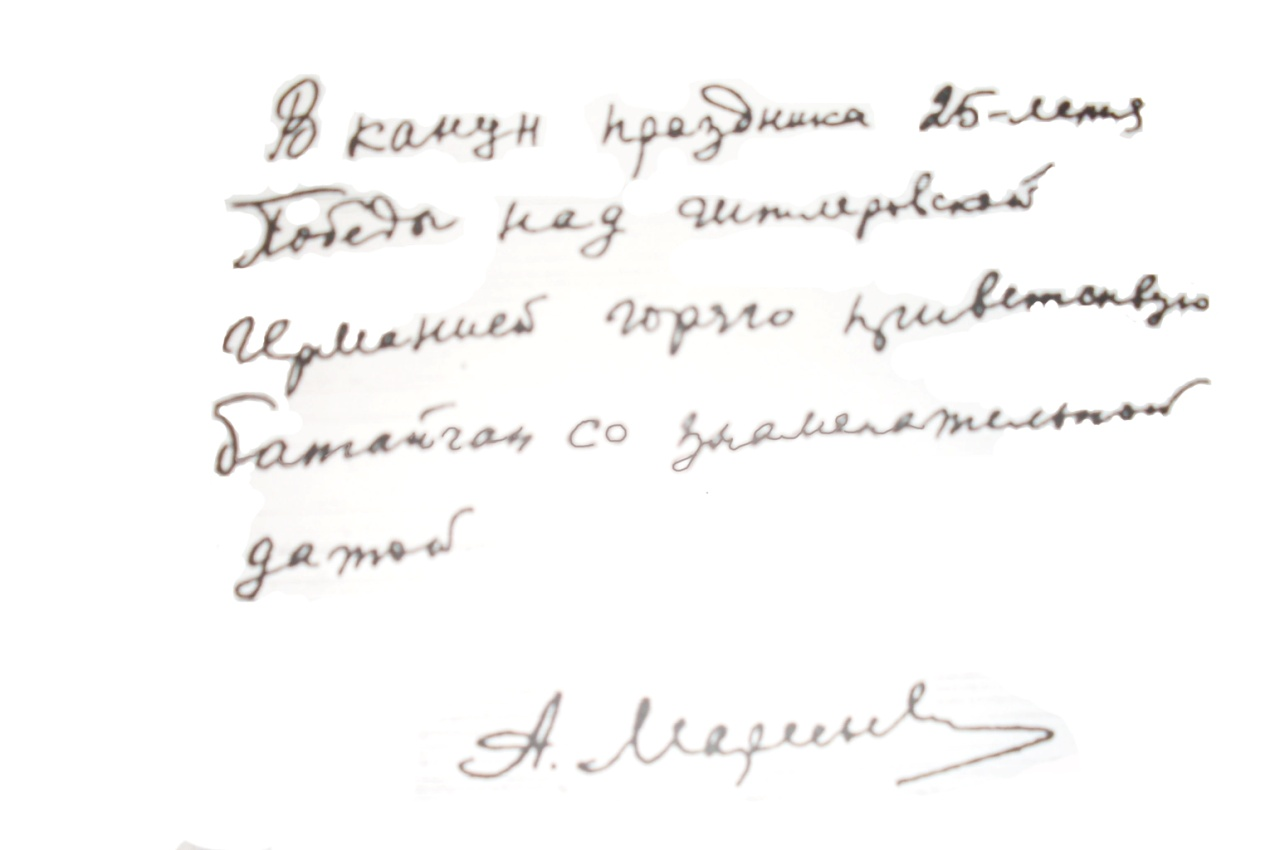 В канун праздника 25-летия
Победы над гитлеровской
Германией горячо приветствую
батайчан со знаменательной
датой
А. Маринов